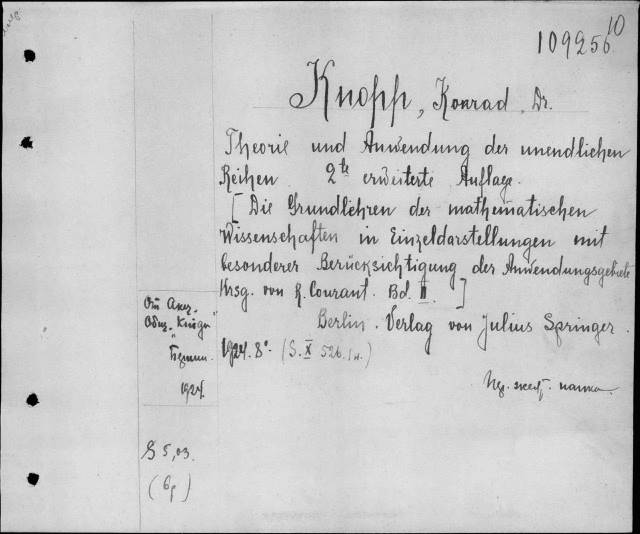 10
109256
Knopp, Konrad, Dr.
Theorie und Anwendung der unendlichen
Reihen 2te erweiterte Auflage.
[ Die Grundlehren der mathematischen
Wissenschaften in Einzeldarstellungen mit
besonderer Berücksichtigung der Anwendungsgebiete
Hrsg. von R. Courant. Bd. II ]
Berlin. Verlag von Julius Springer.
1924. 8° (S. X 526.)
От Акц.
Общ. "Книга"
Берлин.
1924.
$ 5,03.